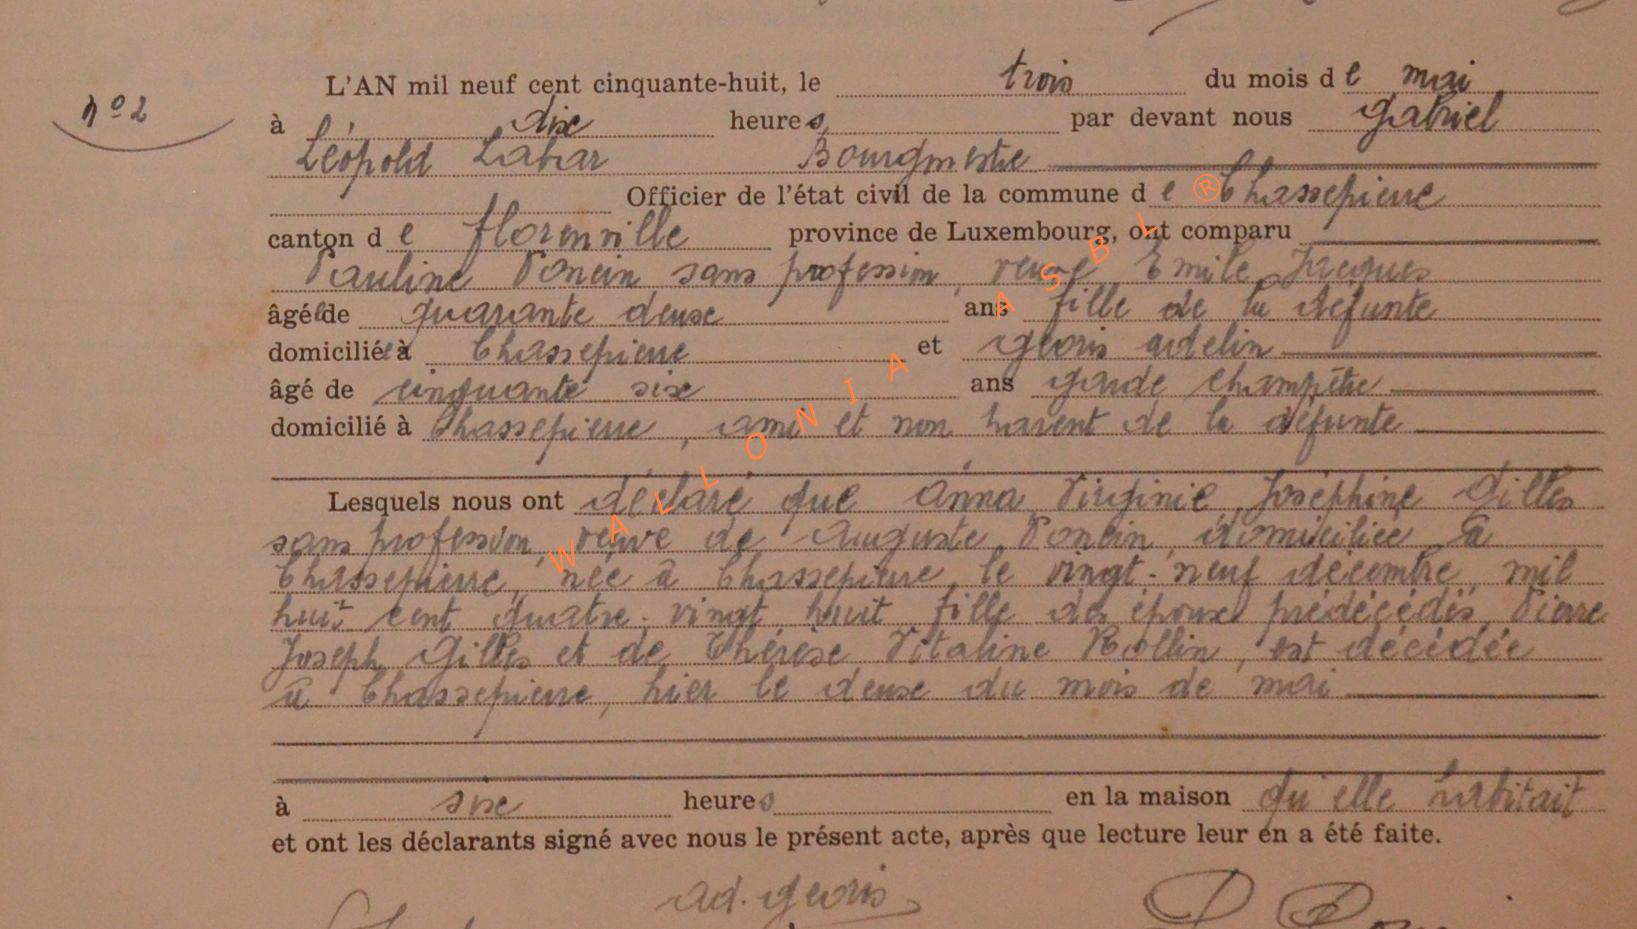 n° 2
L'AN mil neuf cent cinquante-huit, le trois du mois de mai
à dix heures par devant nous Gabriel
Léopold Labar Bourgmestre
Officier de l'état civil de la commune de Chassepierre
canton de Florenville province de Luxembourg, ont comparu
Pauline Poncin sans profession, veuve Emile Jacques
âgée de quarante deux ans fille de la défunte
domiciliée à Chassepierre et Georis Adelin
âgé de cinquante six ans garde champêtre
domicilié à Chassepierre, ami et non parent de la défunte
Lesquels nous ont déclaré que Anna Virginie Joséphine Gilles
sans profession, veuve de Auguste Poncin, domiciliée à
Chassepierre, née à Chassepierre, le vingt-neuf décembre mil
huit cent quatre-vingt huit fille des époux prédécédés Pierre
Joseph Gilles et de Thérèse Vitaline Rollin, est décédée
à Chassepierre, hier le deux du mois de mai
à six heures en la maison qu'elle habitait
et ont les déclarants signé avec nous le présent acte, après que lecture leur en a été faite.
ad. georis
WALLONIA ASBL ®